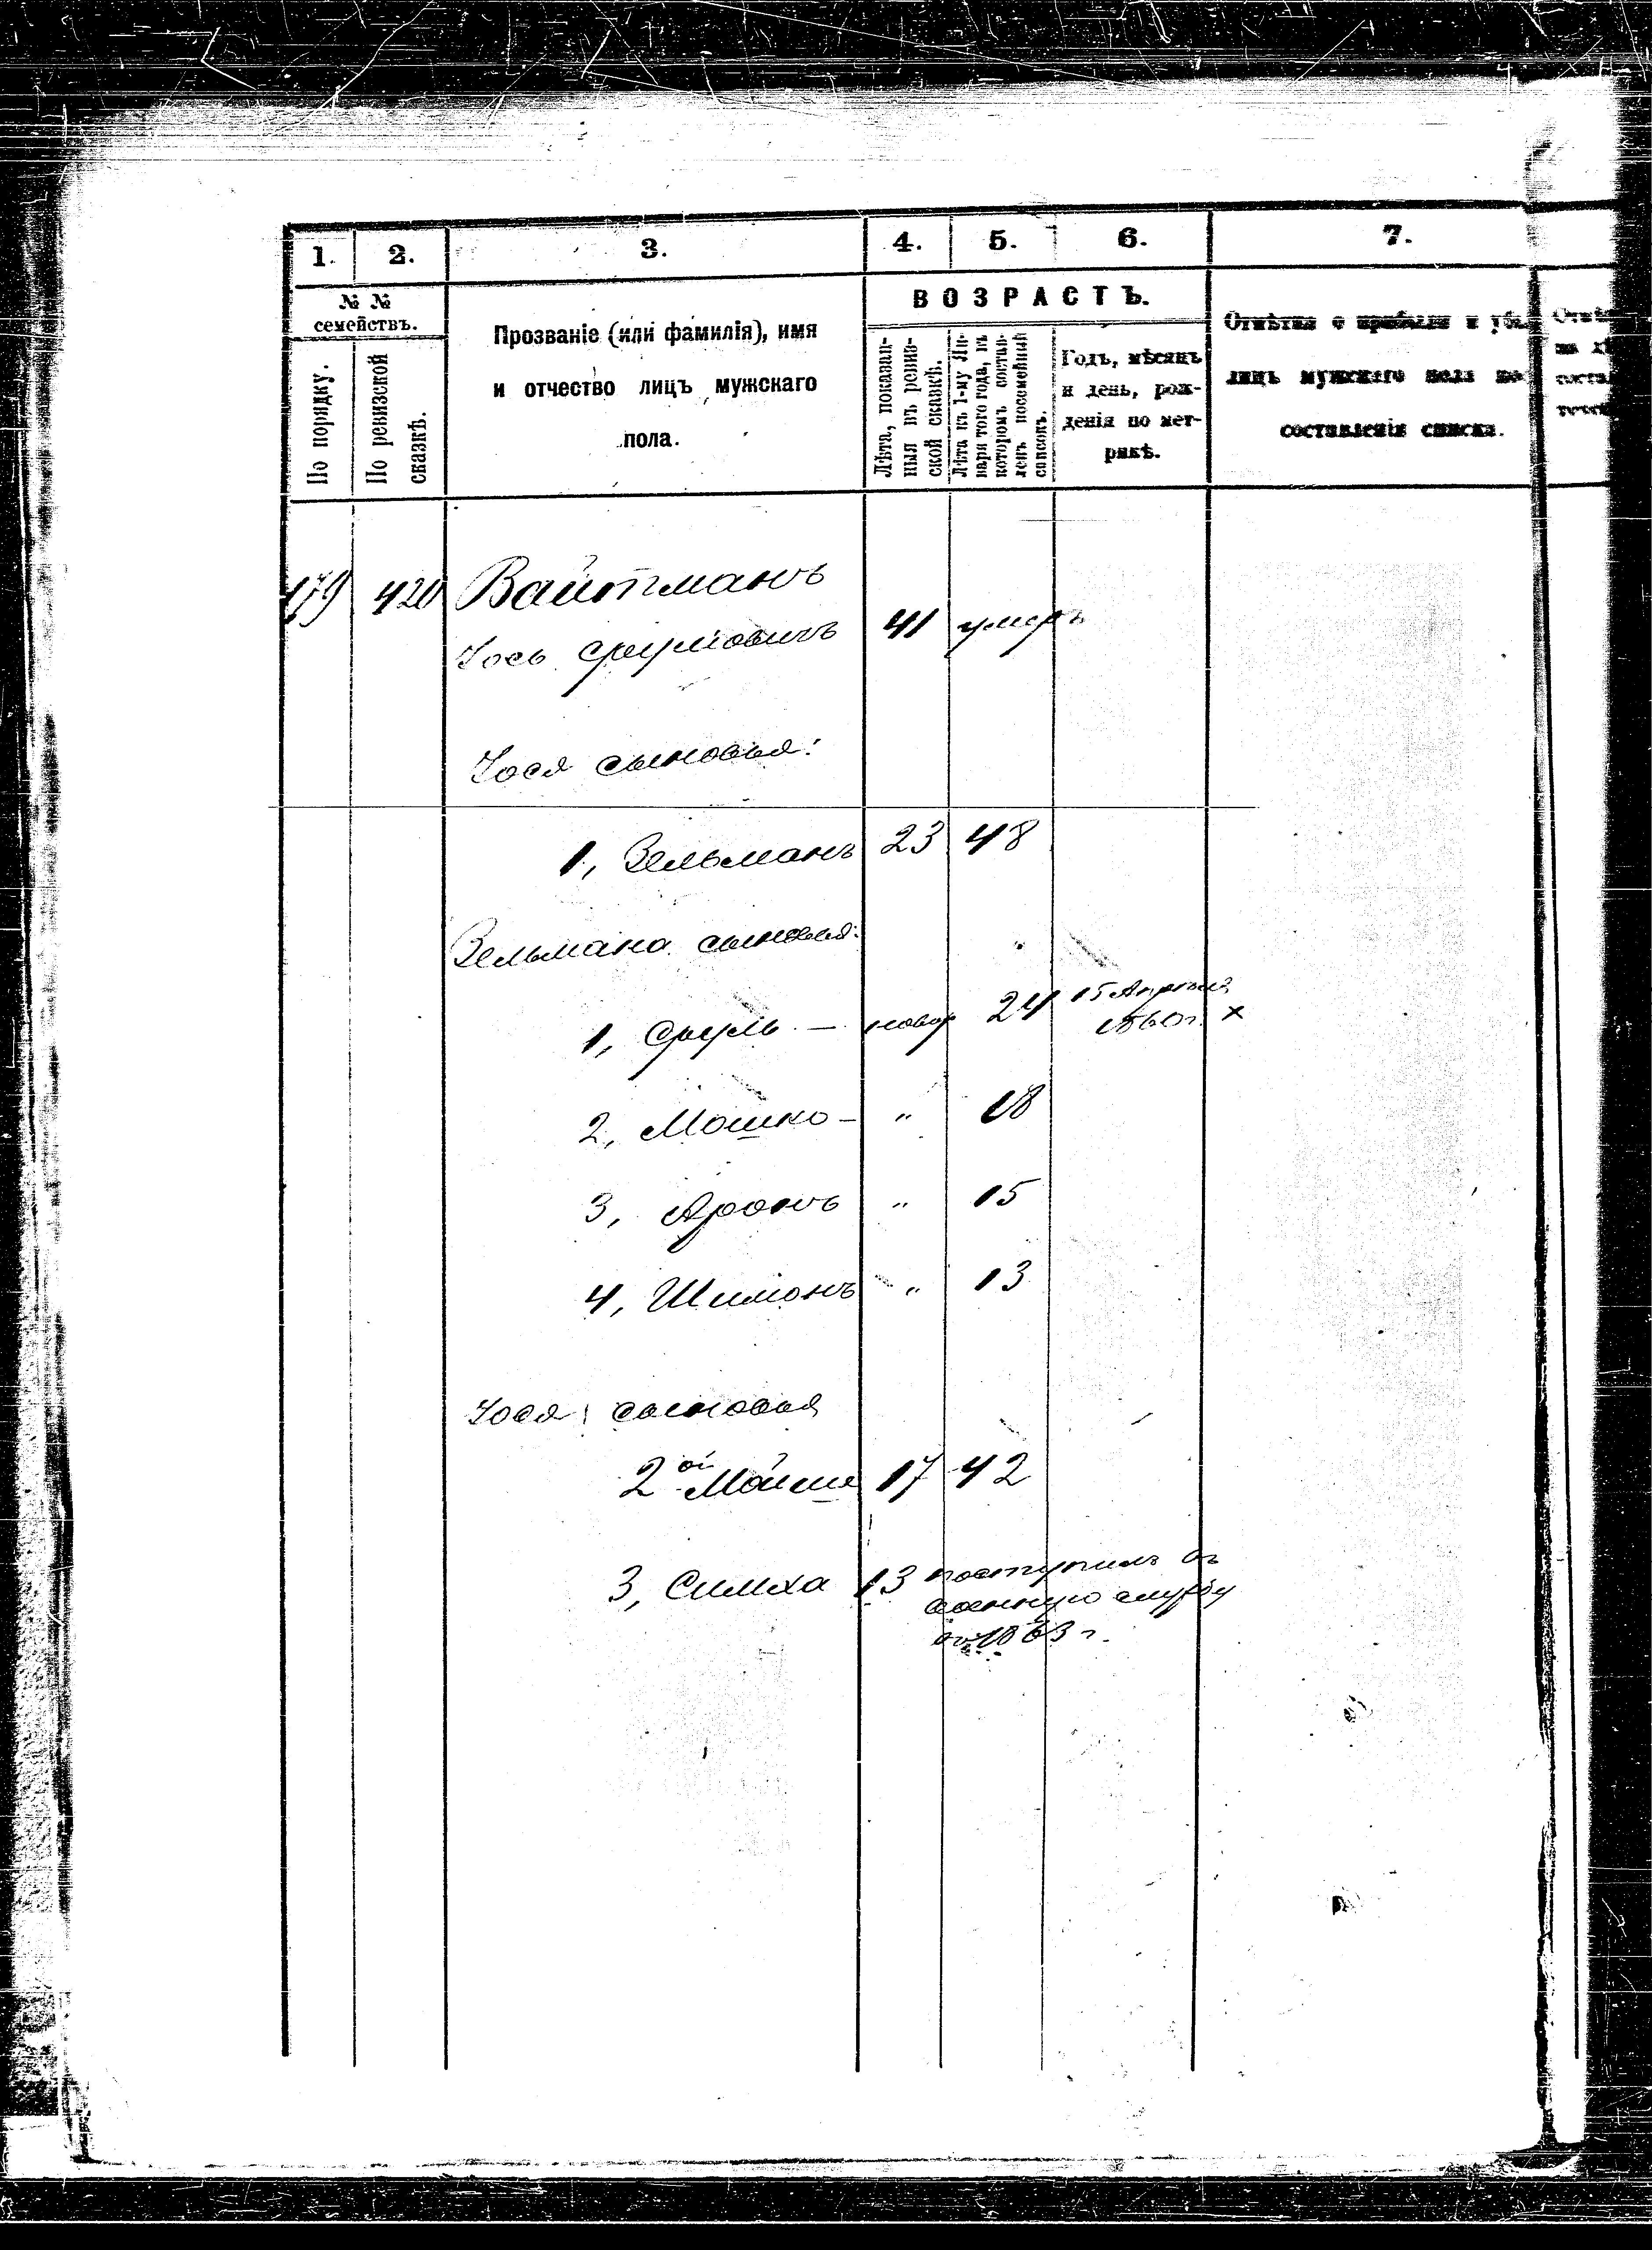 1. 2. 3. 4. 5. 6. 7.
№ №
семействъ.
По порядку.
По ревизской
сказкѣ.
Прозваніе (или фамилія), имя
и отчество лицъ мужскаго
пола.
ВОЗРАСТЪ.
Лѣта, показан-
ныя въ ревиз-
ской сказкѣ.
Лѣта къ 1-му Ян-
варя того года, въ
которомъ состав-
ленъ посемейный
списокъ.
Годъ, мѣсяцъ
и день, рож-
денія по мет-
рикѣ.
Отмѣтки о прибыли и
лицъ мужскаго пола по
составленіи списка.
179 420 Вайтманъ
Іось Срулiовичъ 41 умеръ
Іося сыновья:
1, Зельманъ 23 48
Зельмана сыновья:
1, Сруль — новор 24 15 Апрѣля
1860 г. х
2, Мошко — " 18
3, Аронъ " 15
4, Шимонъ " 13
Іося сыновья
2ой Мойше 17 42
3, Симха 13 поступилъ въ
военную службу
въ 1863 г.